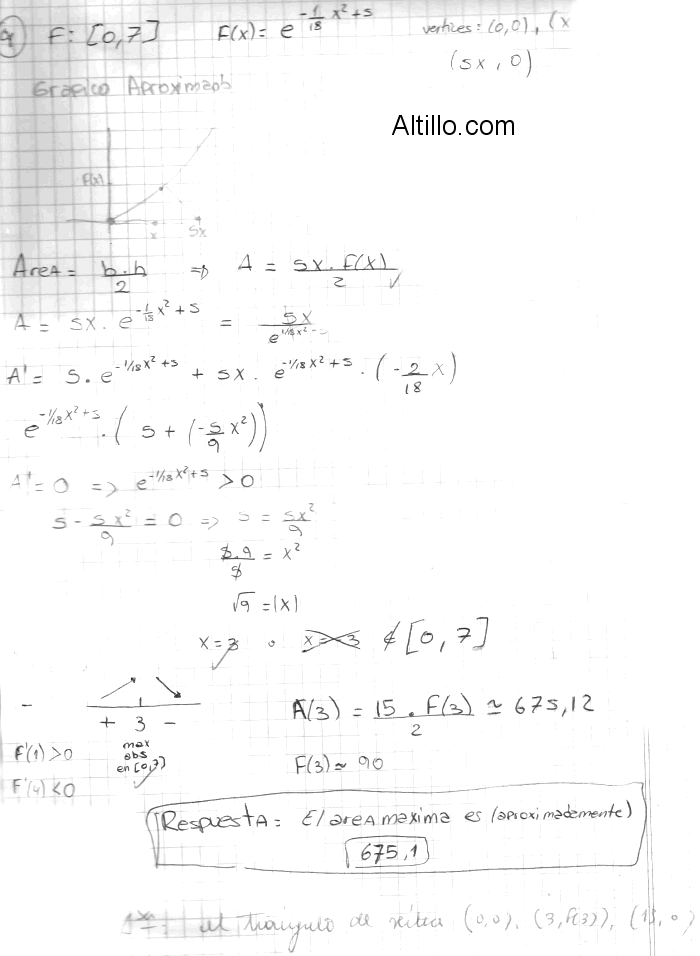 4) F: [0,7] F(x) = e^{-1/18 x² + 5} vertices: (0,0), (x
(5x, 0)
Grafico Aproximado
Altillo.com
F(x)
x 5x
Area = b.h/2 => A = 5x.F(x)/2 ✓
A = 5x. e^{-1/18 x² + 5} = 5x/e^{1/18 x² - 5}
A' = 5. e^{-1/18 x² + 5} + 5x. e^{-1/18 x² + 5}. (-2/18 x)
e^{-1/18 x² + 5}. (5 + (-5/9 x²))
A' = 0 => e^{-1/18 x² + 5} > 0
5 - 5x²/9 = 0 => 5 = 5x²/9
5.9/5 = x²
√9 = |x|
x = 3 o x = -3 ∉ [0,7]
-
+ 3 -
max
abs
en [0,7]
F'(1) > 0
F'(4) < 0
A(3) = 15.F(3)/2 ≃ 675,12
F(3) ≃ 90
Respuesta: El area maxima es (aproximademente)
675,1
el triángulo de (0,0), (3,f(3)), (15,0)